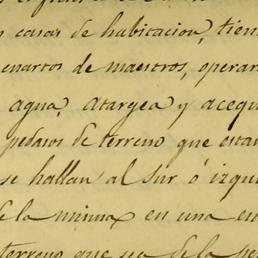 s casas de habitacion, tien
cuartos de maestros, operar
agua, atargea y acequ
pedasos de terreno que esta
se hallan al sur ó izqu
de la misma en una en
terreno que sea de la pe